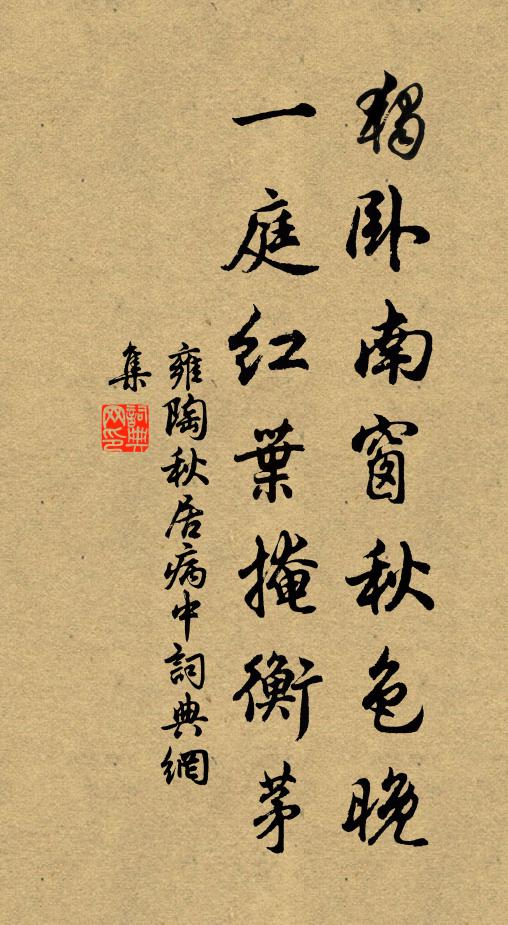 獨卧南窗秋色晚
一庭紅葉掩衡茅
雍陶秋居病中詞典網
集
詞典
网印